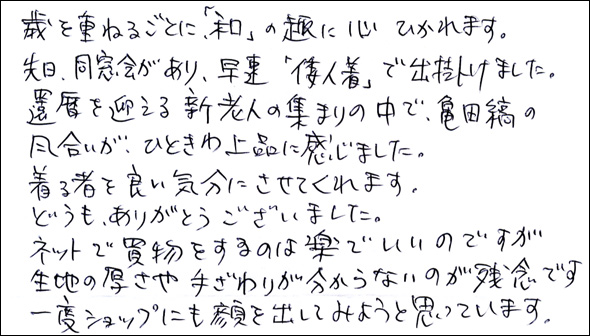 歳を重ねるごとに、「和」の趣に心ひかれます。
先日、同窓会があり、早速「倭人着」で出掛けました。
還暦を迎える新老人の集まりの中で、亀田縞の
風合いが、ひときわ上品に感じました。
着る者を良い気分にさせてくれます。
どうも、ありがとうございました。
ネットで買物をするのは楽でいいのですが
生地の厚さや手ざわりが分からないのが残念です
一度ショップにも顔を出してみようと思っています。